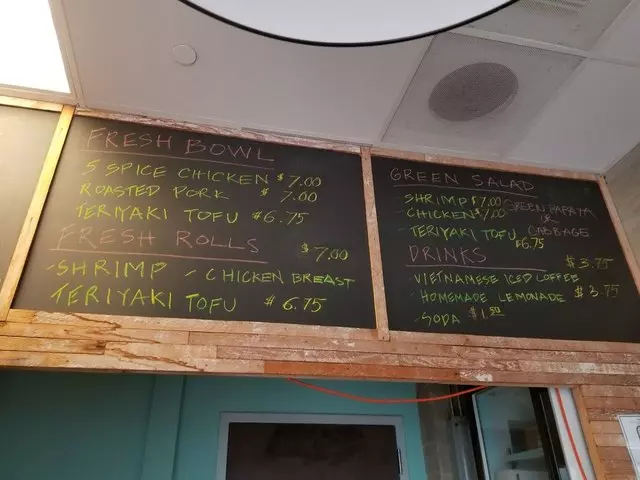 FRESH BOWL
5 SPICE CHICKEN $7.00
ROASTED PORK $7.00
TERIYAKI TOFU $6.75
FRESH ROLLS $7.00
-SHRIMP -CHICKEN BREAST
TERIYAKI TOFU $6.75
GREEN SALAD
SHRIMP $7.00
-CHICKEN $7.00
GREEN PAPAYA
OR
CABBAGE
-TERIYAKI TOFU $6.75
DRINKS $3.75
-VIETNAMESE ICED COFFEE
-HOMEMADE LEMONADE $3.75
-SODA $1.50